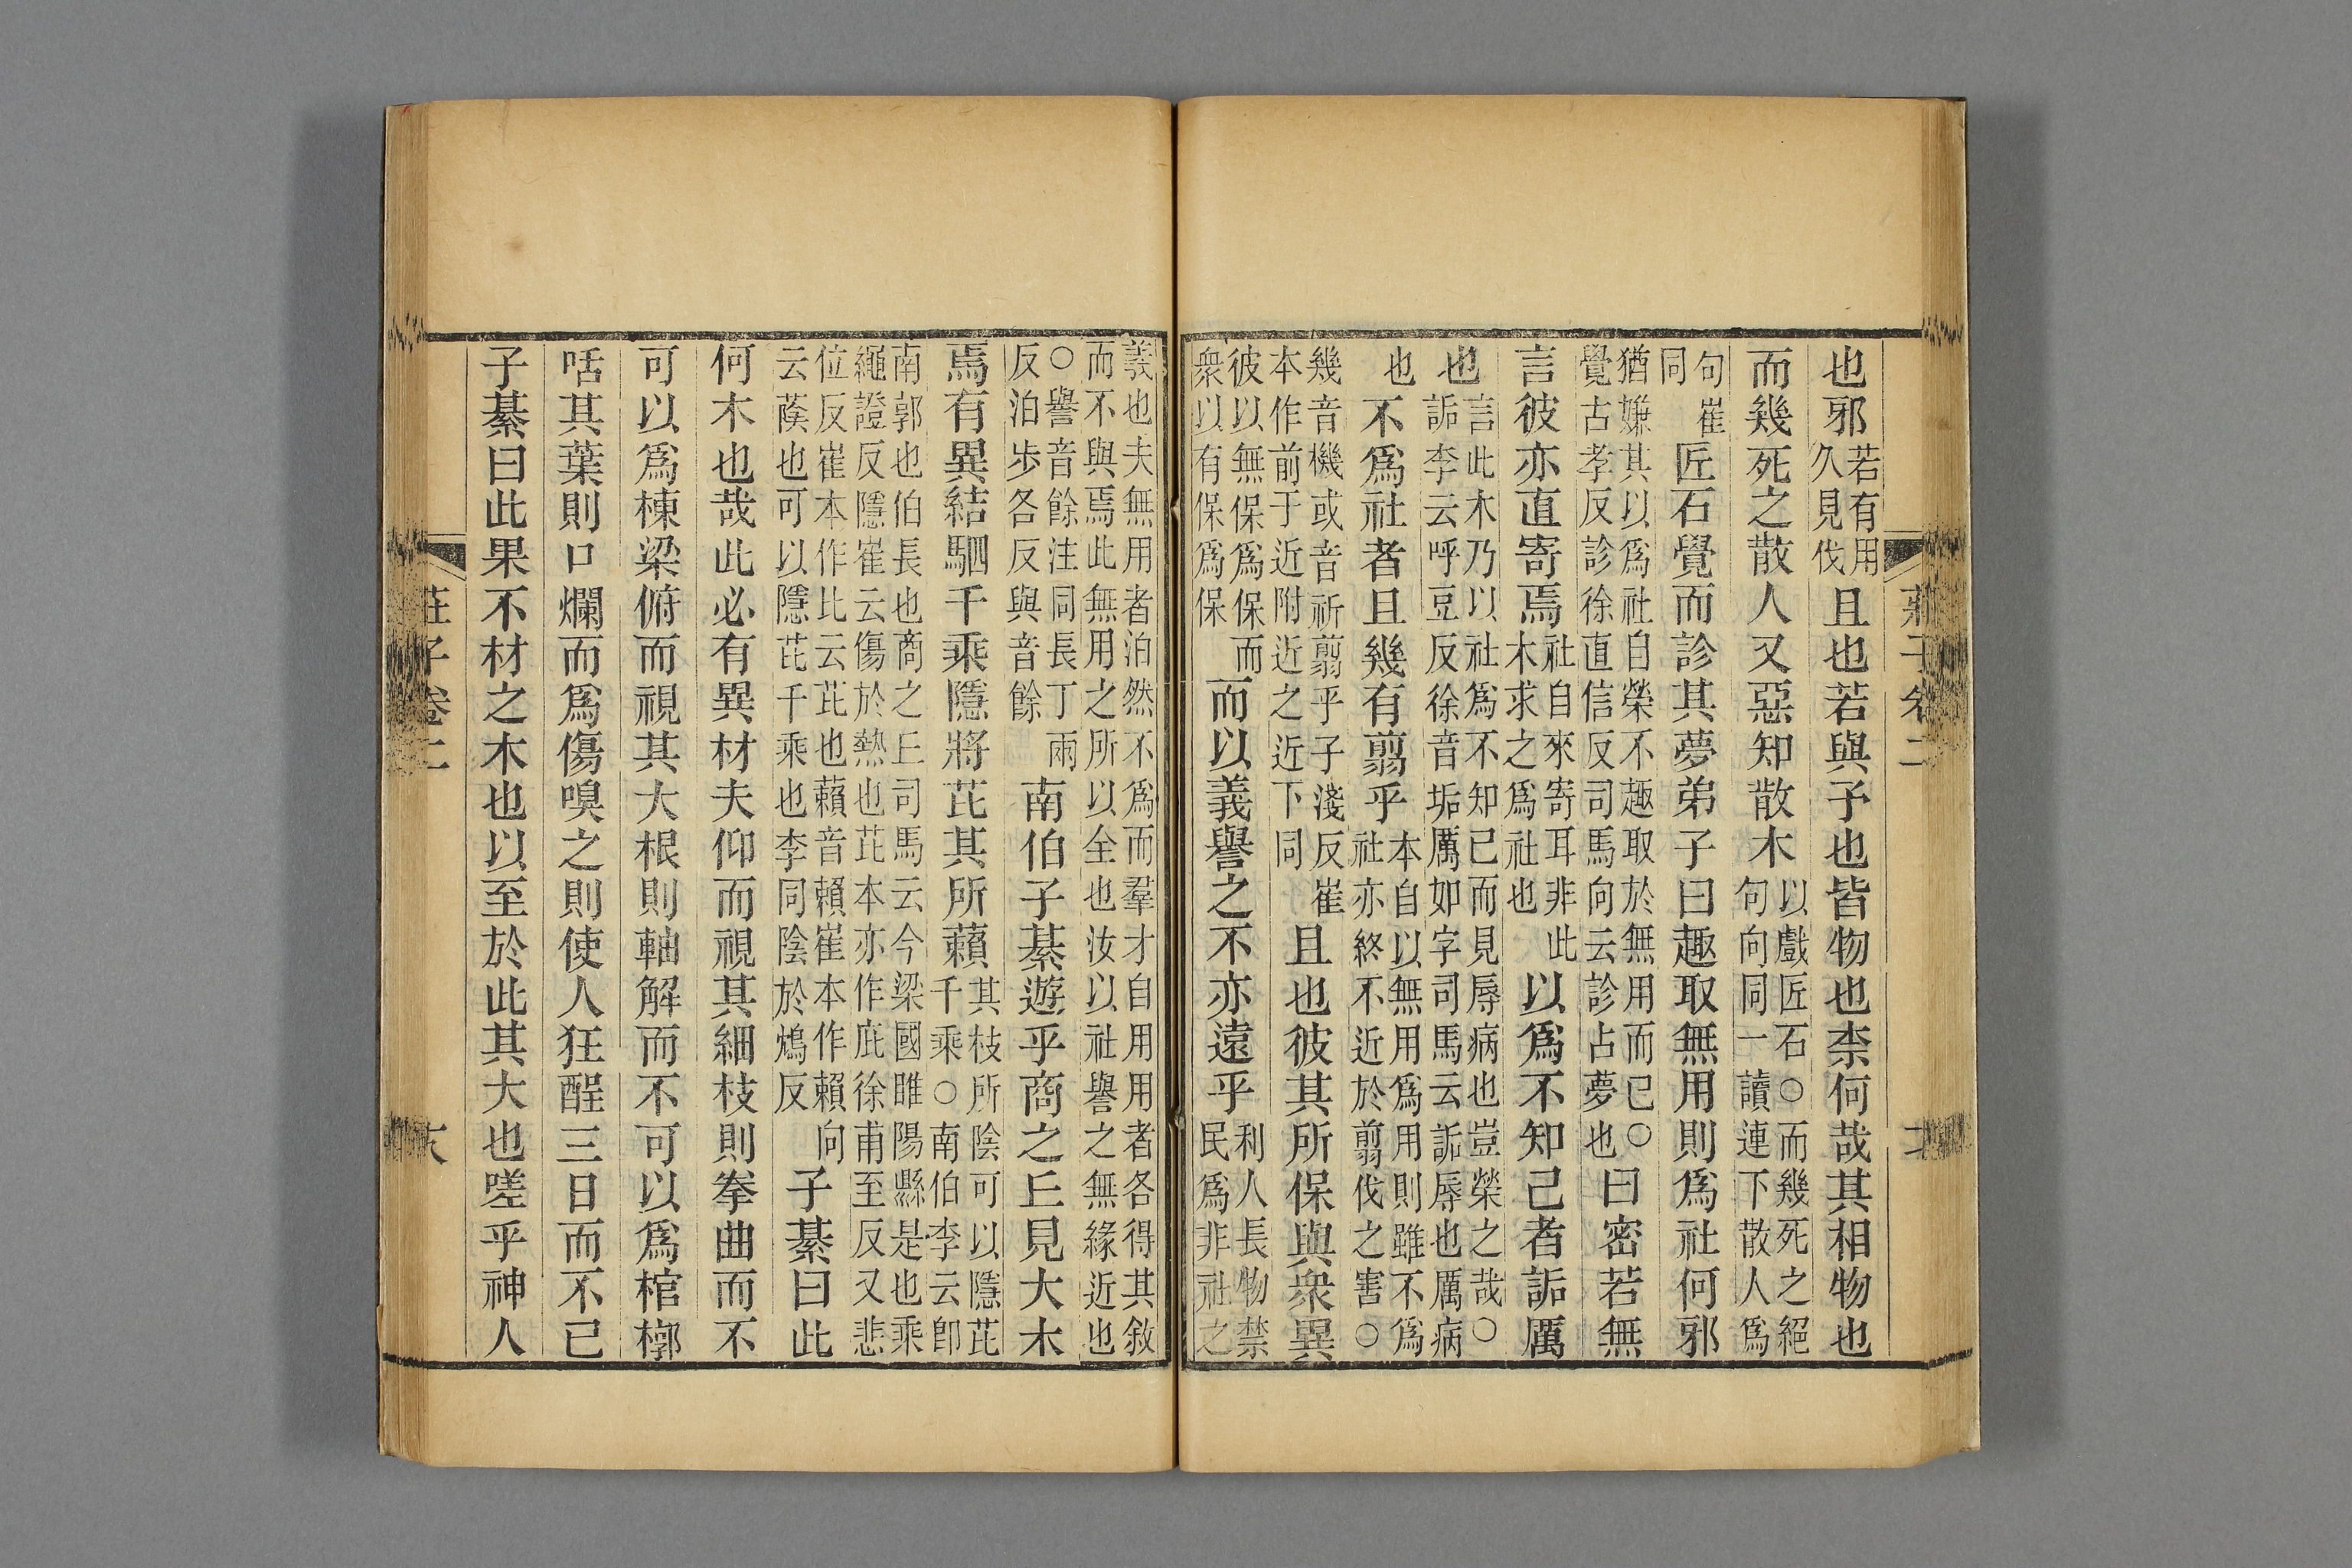 莊子卷二
也邪若有用久見伐且也若與予也皆物也柰何哉其相物也
而幾死之散人又惡知散木以戲匠石○而幾死之絕句向同一讀連下散人爲
句崔同匠石覺而診其夢弟子曰趣取無用則爲社何邪
猶嫌其以爲社自榮不趣取於無用而已○覺古孝反診徐直信反司馬向云診占夢也曰密若無
言彼亦直寄焉社自來寄耳非此木求之爲社也以爲不知己者詬厲
也言此木乃以社爲不知已而見辱病也豈榮之哉○詬李云呼豆反徐音垢厲如字司馬云詬辱也厲病
也不爲社者且幾有翦乎本自以無用爲用則雖不爲社亦終不近於翦伐之害○
幾音機或音祈翦乎子淺反崔本作前于近附近之近下同且也彼其所保與衆異
彼以無保爲保而衆以有保爲保而以義譽之不亦遠乎利人長物禁民爲非社之
義也夫無用者泊然不爲而羣才自用用者各得其敘而不與焉此無用之所以全也汝以社譽之無緣近也
○譽音餘注同長丁兩反泊步各反與音餘南伯子綦遊乎商之丘見大木
焉有異結駟千乘隱將芘其所藾其枝所陰可以隱芘千乘○南伯李云卽
南郭也伯長也商之丘司馬云今梁國睢陽縣是也乘繩證反隱崔云傷於熱也芘本亦作庇徐甫至反又悲
位反崔本作比云芘也藾音賴崔本作賴向云蔭也可以隱芘千乘也李同陰於鴆反子綦曰此
何木也哉此必有異材夫仰而視其細枝則拳曲而不
可以爲棟梁俯而視其大根則軸解而不可以爲棺槨
咶其葉則口爛而爲傷嗅之則使人狂酲三日而不已
子綦曰此果不材之木也以至於此其大也嗟乎神人
莊子卷二